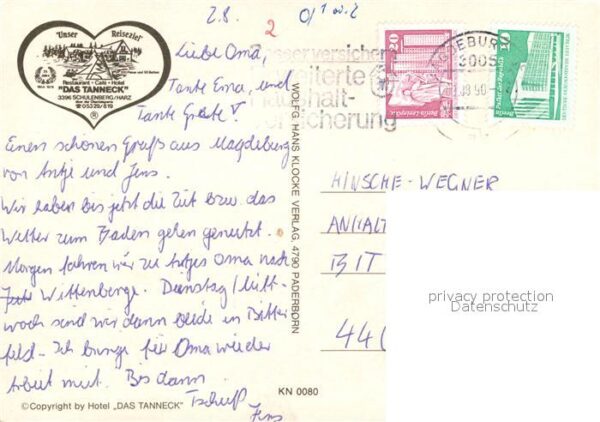 2.8.
2
"Unser Reiseziel"
Restaurant - Café - Hotel
"DAS TANNECK"
3396 SCHULENBERG/HARZ
05329/819
®
Liebe Oma,
Tante Erna, und
Tante Grete!
Einen schönen Gruß aus Magdeburg
von Antje und Jens.
Wir haben bis jetzt die Zeit bzw. das
Wetter zum Baden gehen genutzt.
Morgen fahren wir zu Antjes Oma nach
Wittenberge. Dienstag/Mitt-
woch sind wir dann beide in Bitter-
feld. Ich bringe für Oma wieder
Arbeit mit. Bis dann
Tschüß
Jens
©Copyright by Hotel „DAS TANNECK"
KN 0080
WOLFG. HANS KLOCKE VERLAG, 4790 PADERBORN
besser versichert
erweiterte
Haushalt-
versicherung
20
MAGDEBURG
3005
10
Berlin, Palast der Republik
HINSCHE-WEGNER
ANHALT
BIT
44
privacy protection
Datenschutz